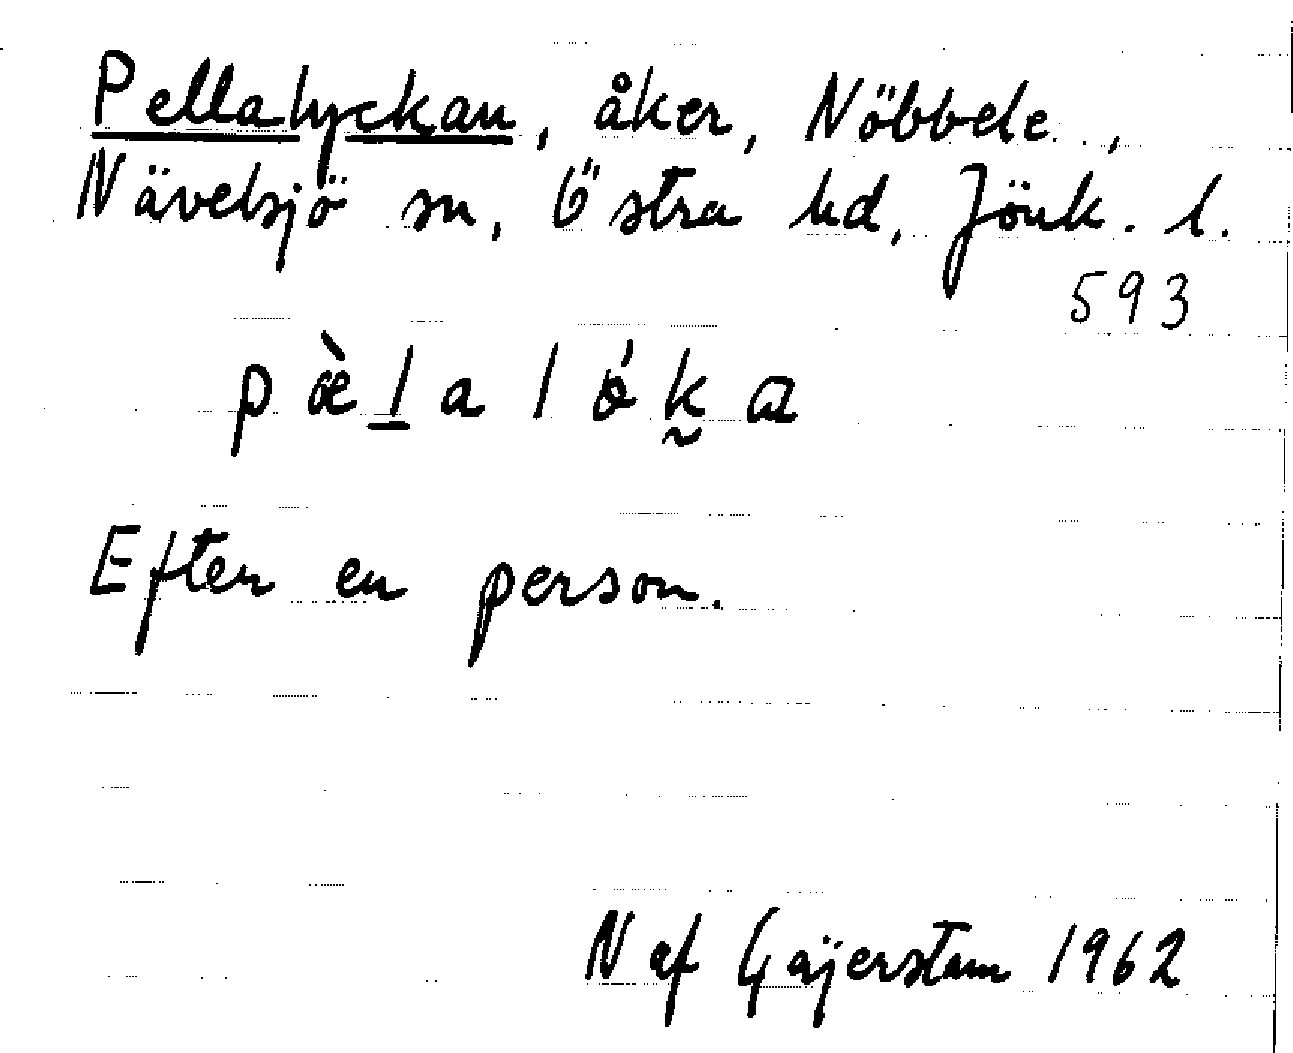 Pellalyckan, åker, Nöbbele.,
Nävelsjö sn, Östra hd, Jönk. l.
593
pæ̀l̲alǿk̰a
Efter en person.
N af Gäjerstam 1962